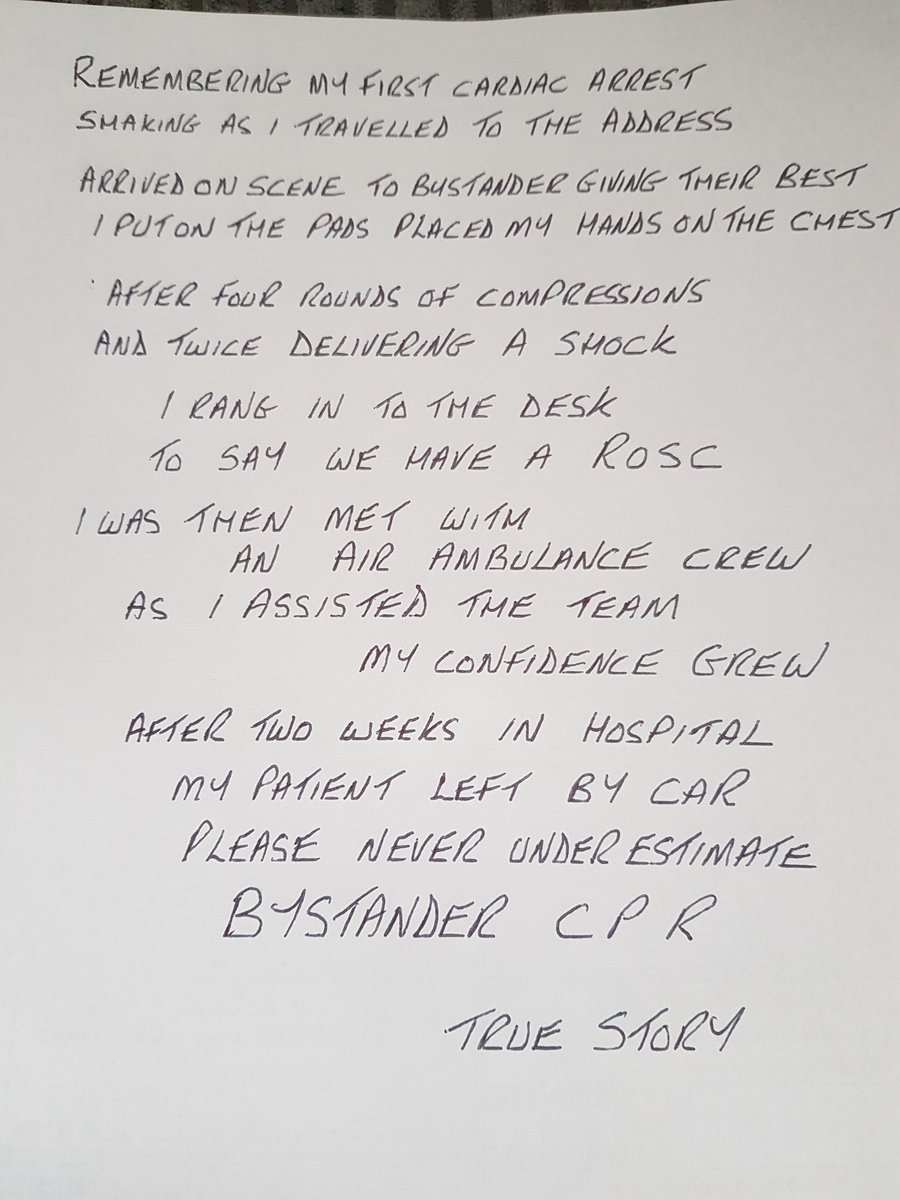 REMEMBERING MY FIRST CARDIAC ARREST
SHAKING AS I TRAVELLED TO THE ADDRESS
ARRIVED ON SCENE TO BYSTANDER GIVING THEIR BEST
I PUT ON THE PADS PLACED MY HANDS ON THE CHEST
AFTER FOUR ROUNDS OF COMPRESSIONS
AND TWICE DELIVERING A SHOCK
I RANG IN TO THE DESK
TO SAY WE HAVE A ROSC
I WAS THEN MET WITH
AN AIR AMBULANCE CREW
AS I ASSISTED THE TEAM
MY CONFIDENCE GREW
AFTER TWO WEEKS IN HOSPITAL
MY PATIENT LEFT BY CAR
PLEASE NEVER UNDERESTIMATE
BYSTANDER CPR
TRUE STORY